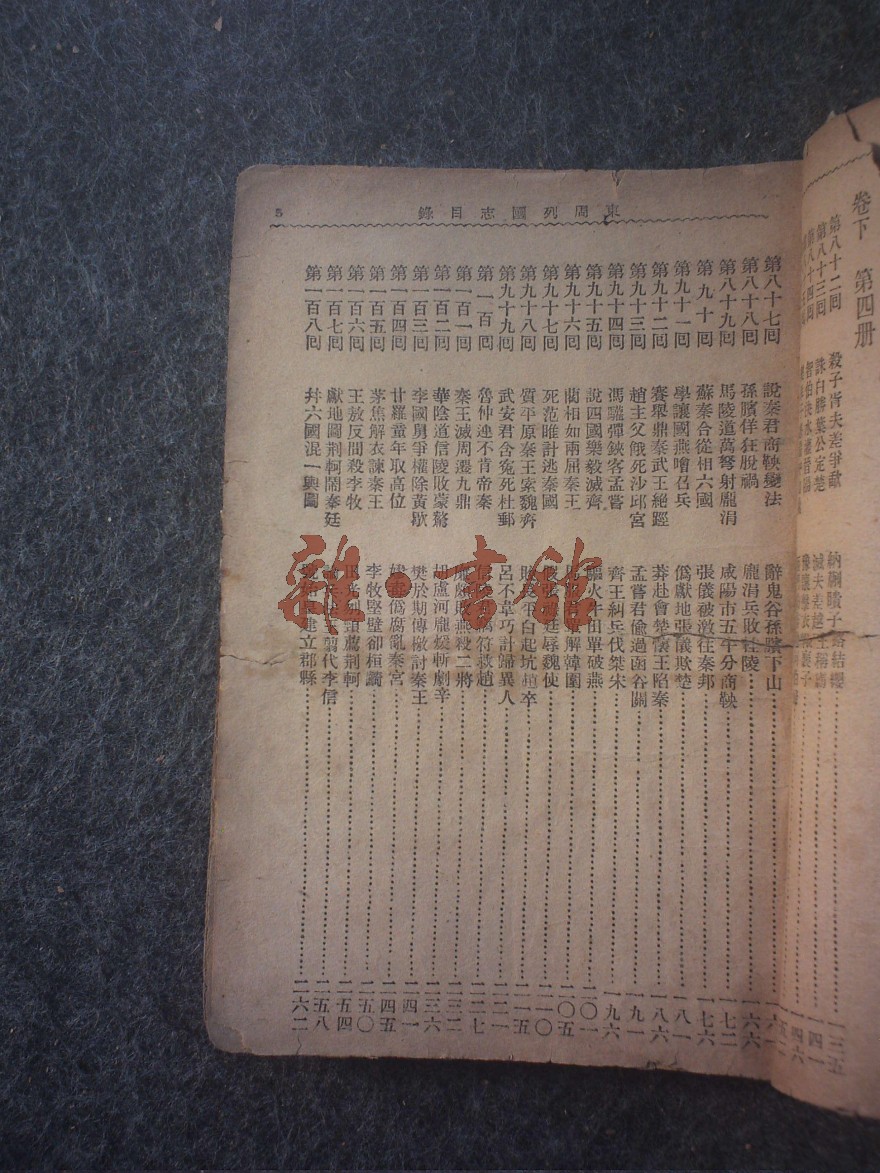 東周列國志目錄
5
卷下 第四册
第八十二回
第八十三回 誅白勝葉公定楚
第八十七回 說秦君商鞅變法 辭鬼谷孫臏下山
第八十八回 孫臏佯狂脫禍 龐涓兵敗桂陵
第八十九回 馬陵道萬弩射龐涓 咸陽市五牛分商鞅 一七二
第九十回 蘇秦合從相六國 張儀被激往秦邦 一七六
第九十一回 學讓國燕噲召兵 僞獻地張儀欺楚 一八一
第九十二回 賽舉鼎秦武王絕脛 莽赴會楚懷王陷秦 一八六
第九十三回 趙主父餓死沙邱宮 孟嘗君偸過函谷關 一九一
第九十四回 馮驩彈鋏客孟嘗 齊王糾兵伐桀宋 一九六
第九十五回 說四國樂毅滅齊 驅火牛田單破燕 二〇一
第九十六回 藺相如兩屈秦王 解韓圍 二〇五
第九十七回 死范睢計逃秦國 廷辱魏使 二一〇
第九十八回 質平原秦王索魏齊 白起坑趙卒 二一五
第九十九回 武安君含冤死杜郵 呂不韋巧計歸異人 二二一
第一百回 魯仲連不肯帝秦 符救趙 二二七
第一百一回 秦王滅周遷九鼎 燕殺二將 二三二
第一百二回 華陰道信陵敗蒙驁 胡盧河龐煖斬劇辛 二三六
第一百三回 李國舅爭權除黃歇 樊於期傳檄討秦王 二四一
第一百四回 甘羅童年取高位 僞腐亂秦宮 二四五
第一百五回 茅焦解衣諫秦王 李牧堅壁卻桓齮 二五〇
第一百六回 王敖反間殺李牧 田光刎頸薦荆軻 二五四
第一百七回 獻地圖荆軻鬧秦廷 王翦代李信 二五八
第一百八回 幷六國混一輿圖 建立郡縣 二六二
雜·書館